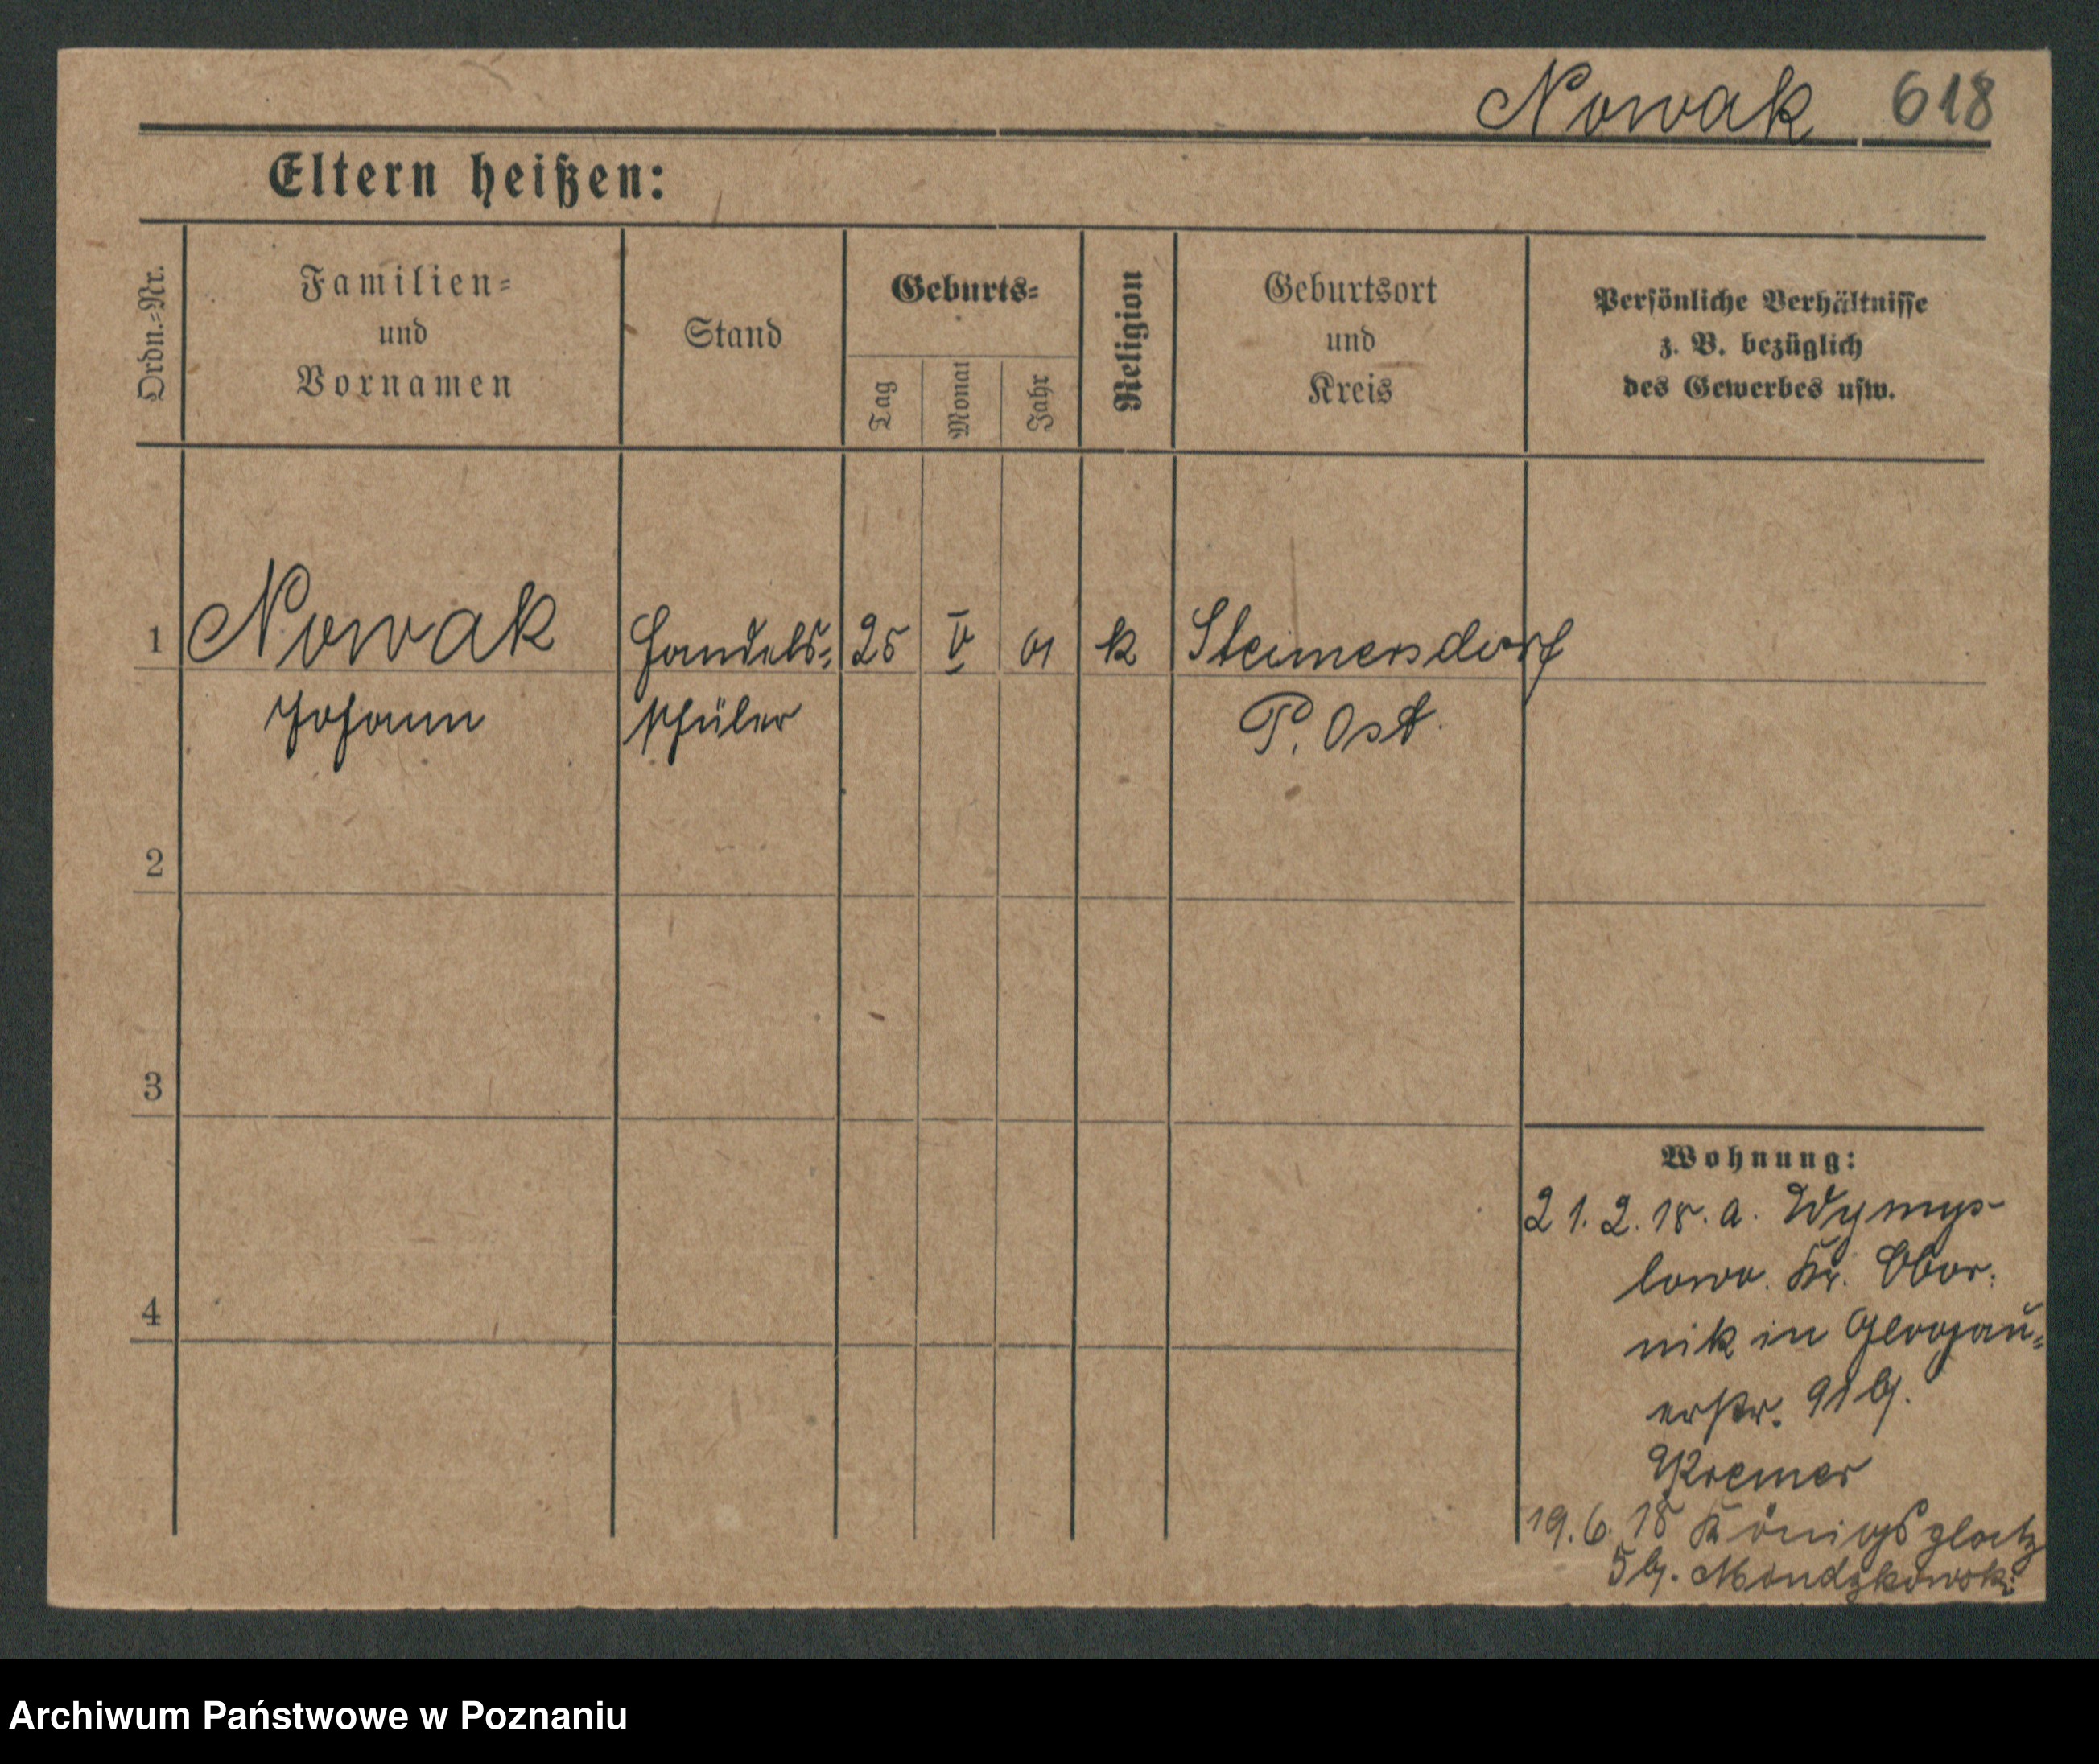 Nowak 618
Eltern heißen:
Ordn.-Nr.
Familien-
und
Vornamen
Stand
Geburts-
Tag
Monat
Jahr
Religion
Geburtsort
und
Kreis
Persönliche Verhältnisse
z. B. bezüglich
des Gewerbes usw.
1 Nowak Handels- 25 V 01 k Steimersdorf
Johann schüler P. Ost.
2
3
4
Wohnung:
21. 2. 18. a. Wymys-
lowo. Kr. Obor-
nik in Glogau-
erstr. 91 bj.
Kremer
19. 6. 18 Königsplatz
5 bj. Mondzkowski
Archiwum Państwowe w Poznaniu